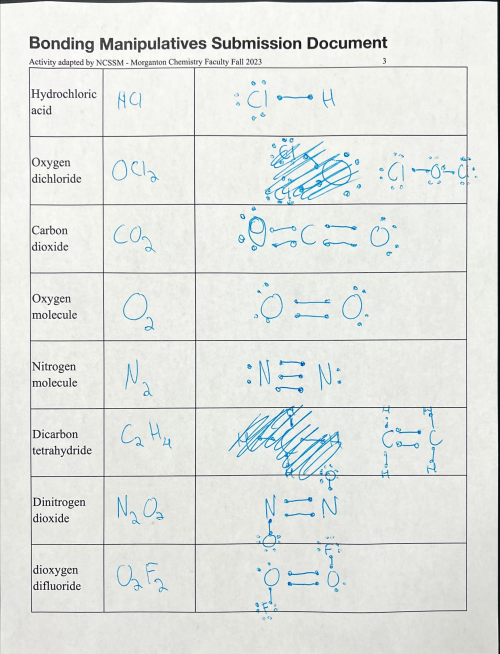 Bonding Manipulatives Submission Document
Activity adapted by NCSSM - Morganton Chemistry Faculty Fall 2023
3
Hydrochloric
acid
HCl
Cl H
Oxygen
dichloride
OCl2
Cl O Cl
Carbon
dioxide
CO2
O C O
Oxygen
molecule
O2
O O
Nitrogen
molecule
N2
N N
Dicarbon
tetrahydride
C2H4
H H
C C
H H
Dinitrogen
dioxide
N2O2
O
N N
O
dioxygen
difluoride
O2F2
F
O O
F